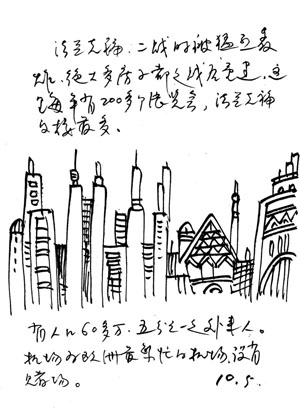 法兰克福,二战时被猛烈轰
炸,绝大多房子都是战后重建,这
里每年有200多个展览会,法兰克福
女楼最多。
有人口60多万,五分之一是外来人。
机场为欧洲最繁忙的机场,设有
赌场。 10.5.